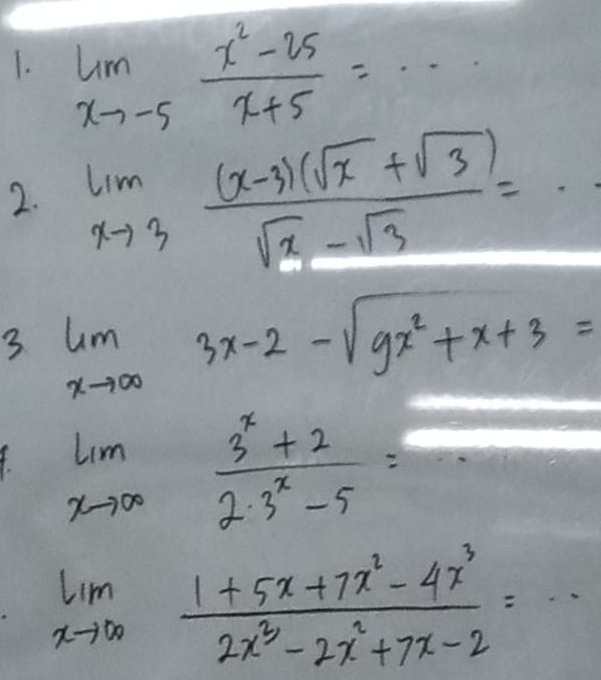 1. lim x→-5 (x² - 25)/(x + 5) = ....
2. lim x→3 (x-3)(√x + √3)/(√x - √3) = ..
3 lim x→∞ 3x - 2 - √(9x² + x + 3) =
lim x→∞ (3^x + 2)/(2·3^x - 5) = ...
lim x→∞ (1 + 5x + 7x² - 4x³)/(2x³ - 2x² + 7x - 2) = ..